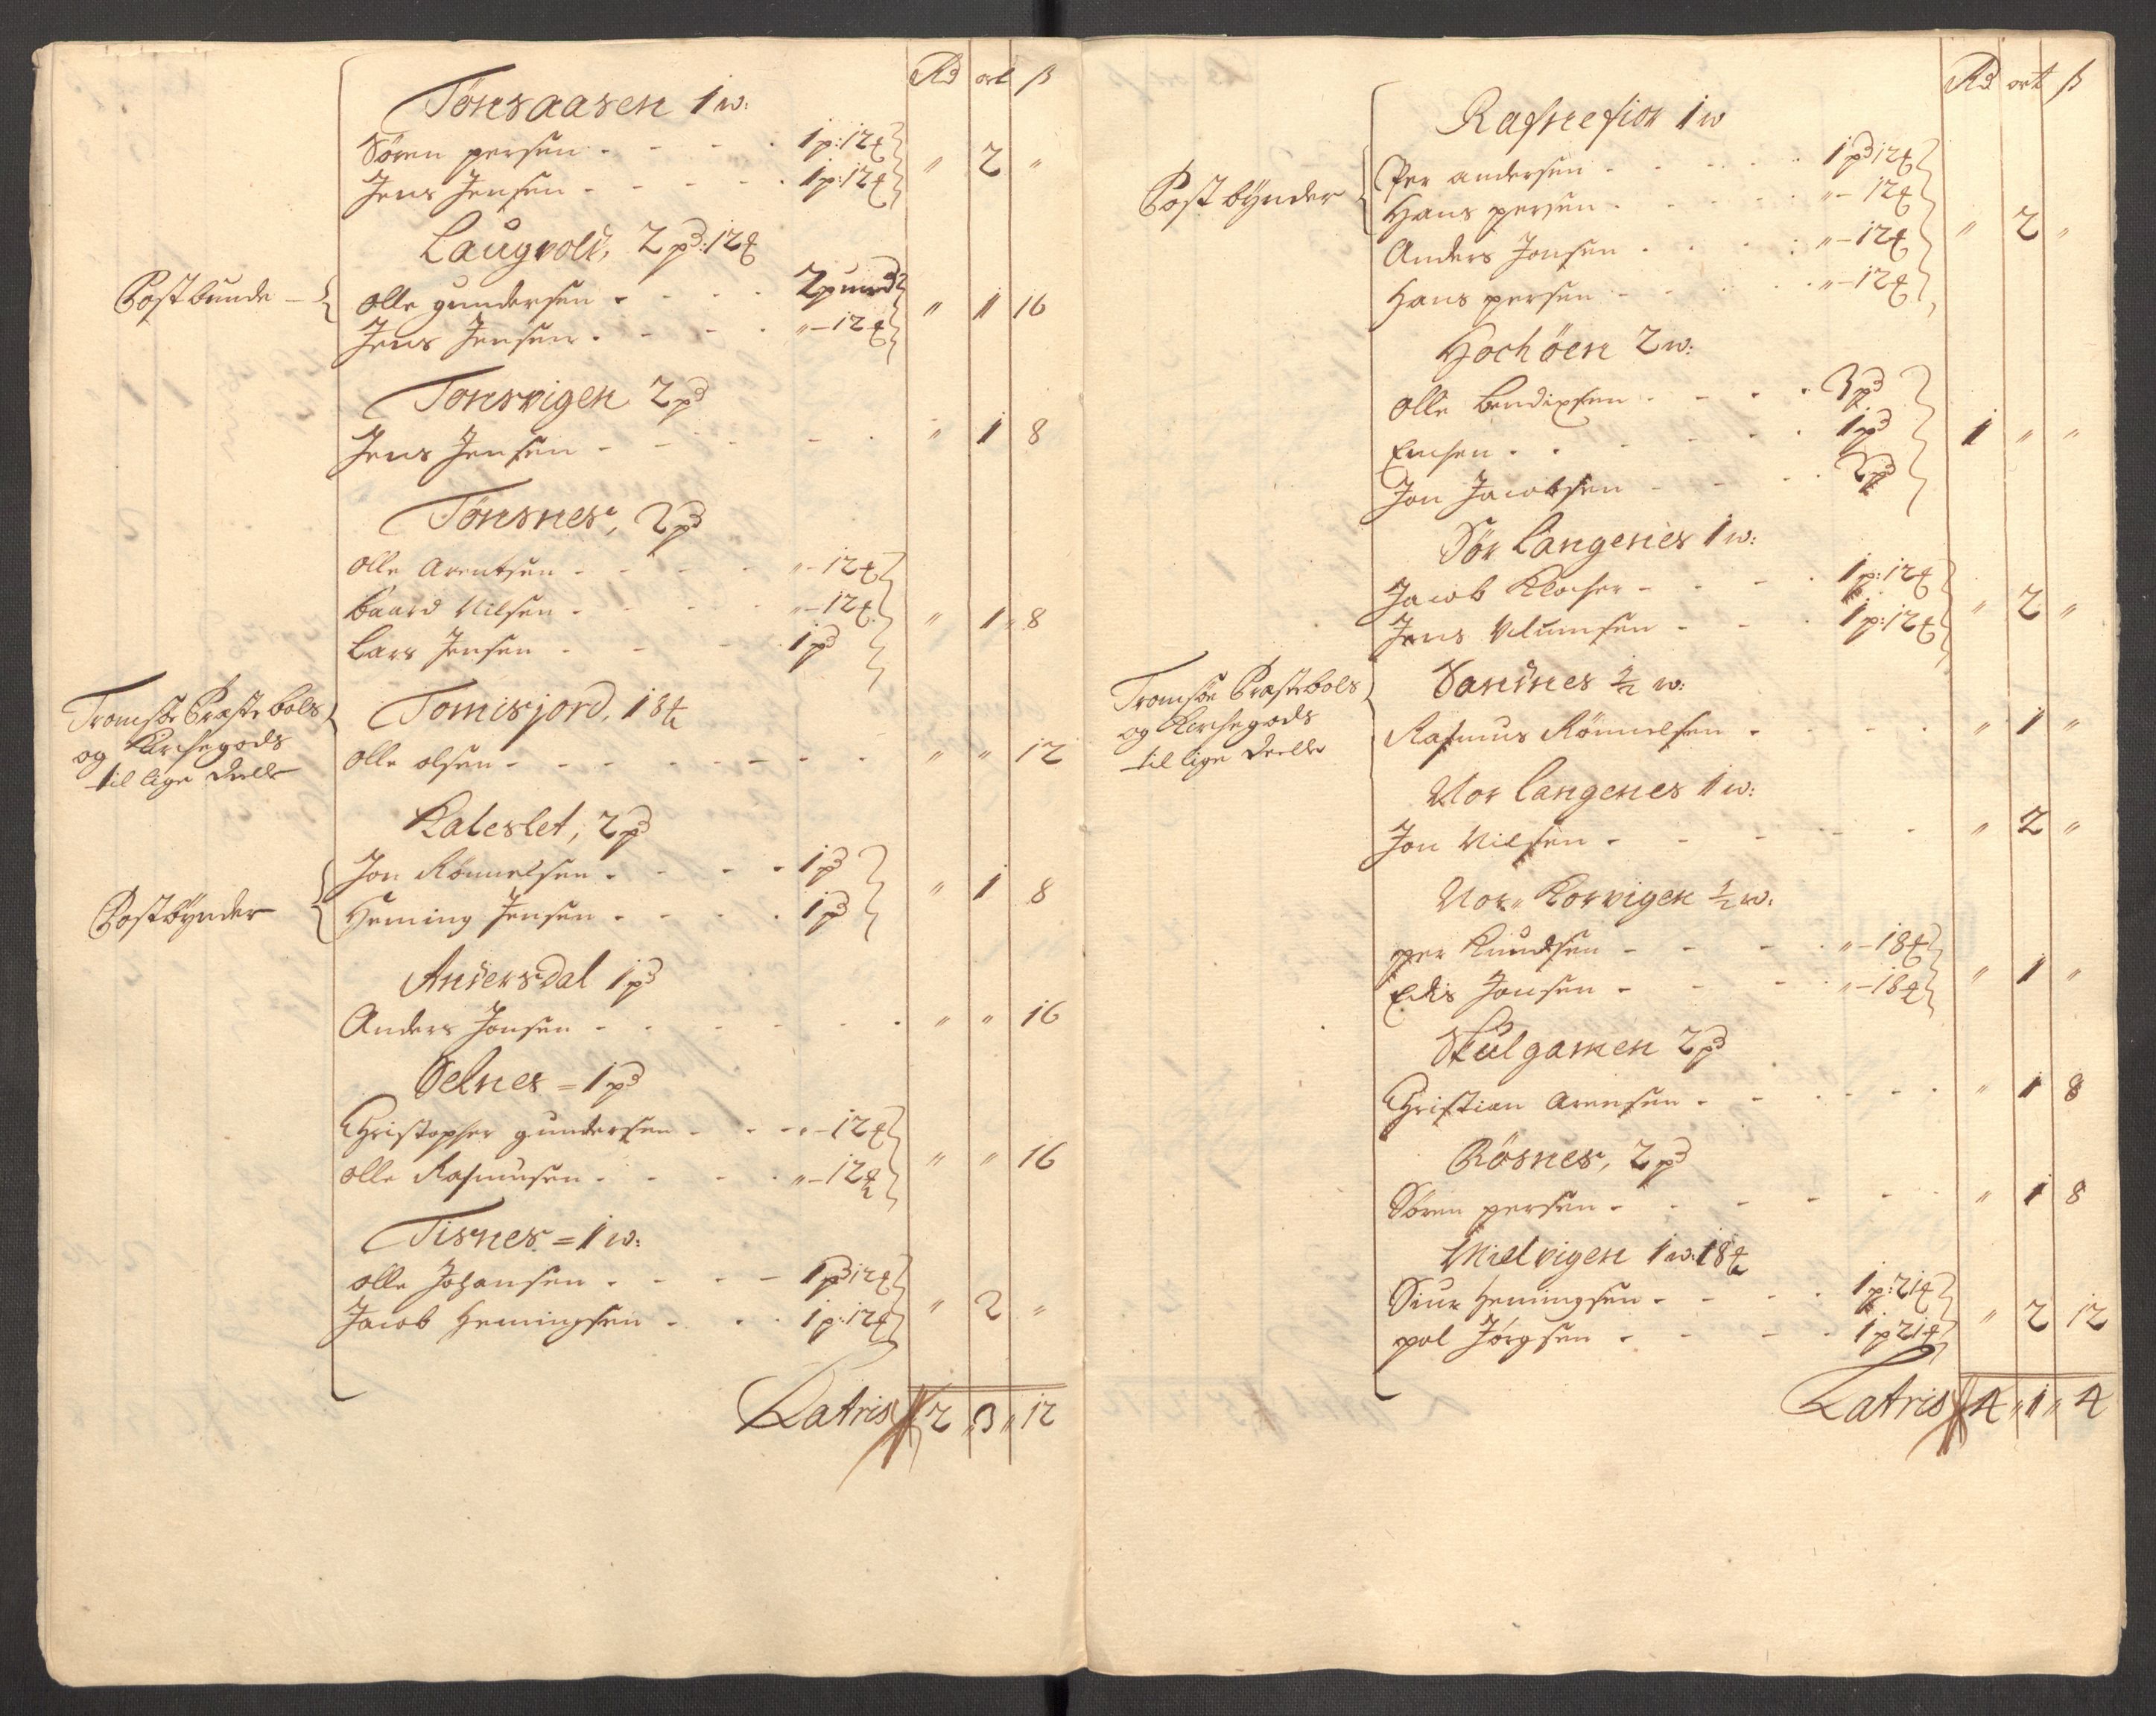 Rd ort ß
Tønsaasen 1 w:
Søren persen - - - 1 p: 12 ℔
Jens Jensen - - - 1 p: 12 ℔ " 2 "
Laugvold, 2 pd: 12 ℔
Postbunde - Olle gundersen - - - 2 pund
Jens Jensen - - - " - 12 ℔ " 1 16
Tonsvigen 2 pd
Jens Jensen - - - " 1 8
Tønsnes, 2 pd
Olle Arentsen - - - " - 12 ℔
Baard Nilsen - - - " - 12 ℔
Lars Jensen - - - 1 pd " 1 " 8
Tromsøe Præstebols og Kirchegods til lige deelle
Tomisjord, 18 ℔
Olle olsen - - - " " 12
Kaleslet, 2 pd
Jon Rønnelsen - - - 1 pd
Postbÿnder Heming Jensen - - - 1 pd " 1 8
Andersdal 1 pd
Anders Jonsen - - - " " 16
Selnes = 1 pd
Christopher gundersen - - - " - 12 ℔
Olle Rasmusen - - - " - 12 ℔ " " 16
Tisnes = 1 w:
Olle Johansen - - - 1 pd 12 ℔
Jacob Hemingsen - - - 1 p: 12 ℔ " 2 "
Latris 2 " 3 " 12
Rd ort ß
Rafnefior 1 w
Postbÿnder
Per andersen - - - 1 pd 12 ℔
Hans persen - - - " - 12 ℔
Anders Jonsen - - - " - 12 ℔
Hans persen - - - " - 12 ℔ " 2 "
Hochøen 2 w:
Olle Bendixsen - - - 3 pd
Enchen - - - 1 pd
Jon Jacobsen - - - 2 pd 1 " "
Sør Langenes 1 w:
Jacob Klocher - - - 1 p: 12 ℔
Jens Villumsen - - - 1 p: 12 ℔ " 2 "
Tromsøe Præstebols og Kirchegods til lige deelle
Sandnes ½ w:
Rasmus Rønnelsen - - - " 1 "
Nor Langenes 1 w:
Jon Nilsen - - - " 2 "
Nor " Korvigen ½ w:
per Knudsen - - - " - 18 ℔
Edis Jonsen - - - " - 18 ℔ " 1 "
Skulgamen 2 pd
Christian Arensen - - - " 1 8
Røsnes, 2 pd
Søren persen - - - " 1 8
Mielvigen 1 w: 18 ℔
Siur Hemingsen - - - 1 p: 21 ℔
pol Jørgsen - - - 1 p 21 ℔ " 2 12
Latris 4 " 1 " 4